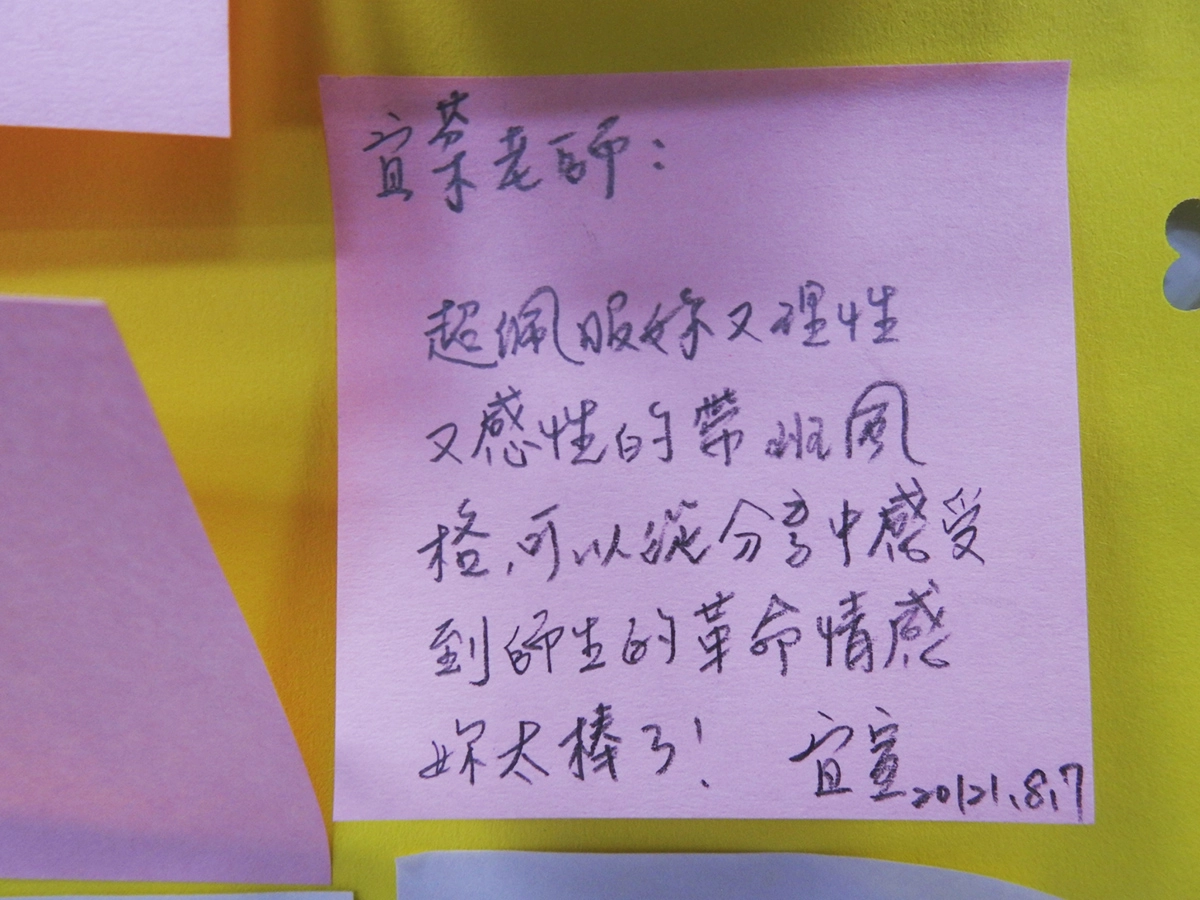 宜棻老師：
超佩服妳又理性
又感性的帶班風
格,可以從分享中感受
到師生的革命情感
妳太棒了! 宜萱20121.8.7